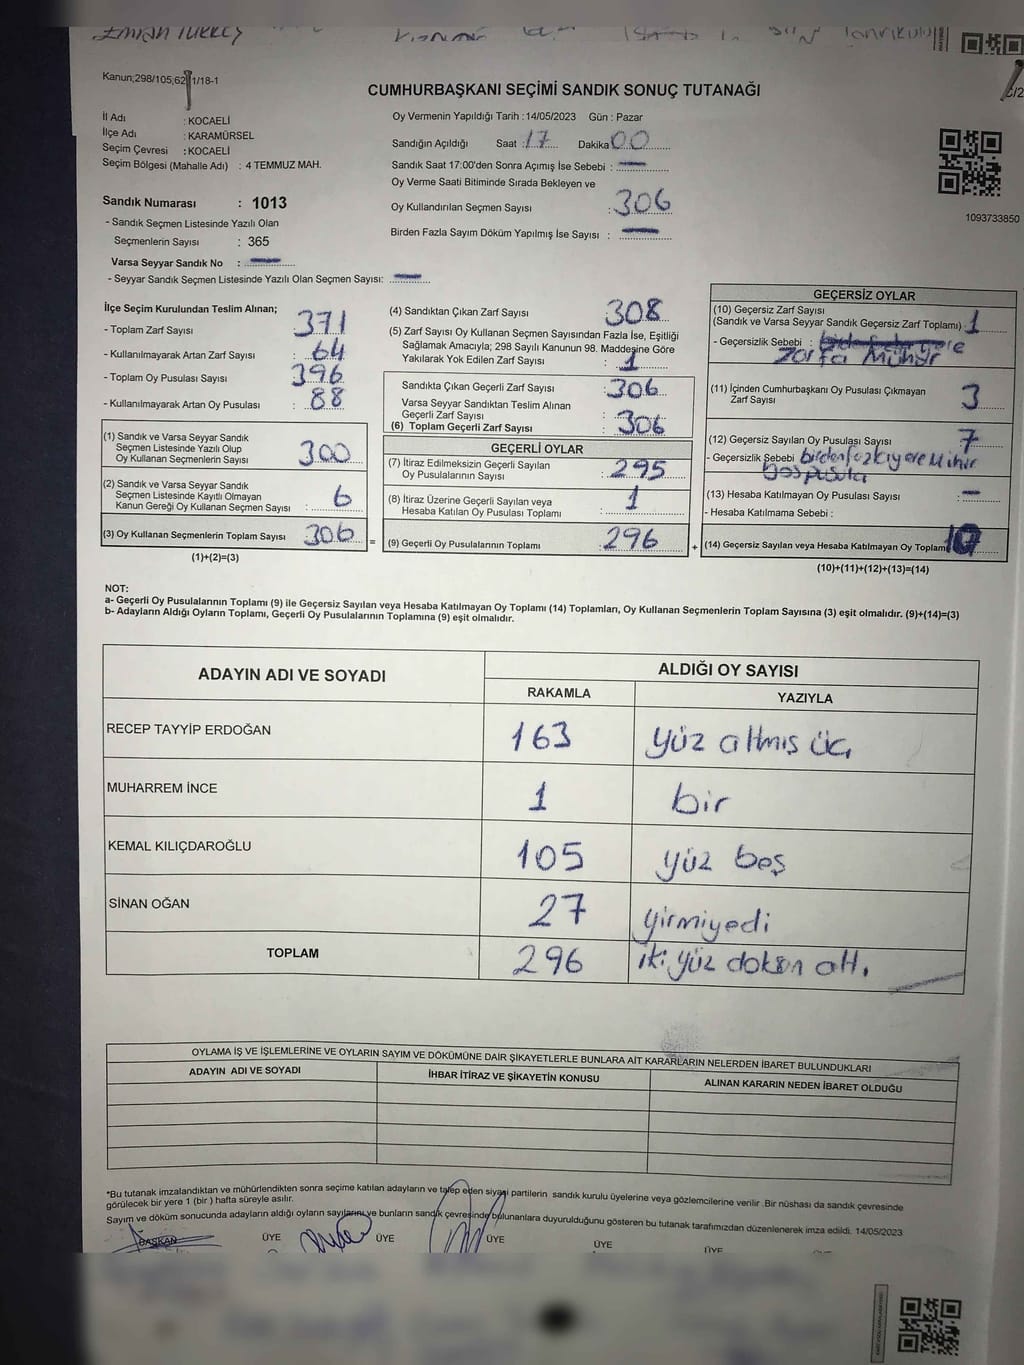 Kanun;298/105;62 1/18-1
CUMHURBAŞKANI SEÇİMİ SANDIK SONUÇ TUTANAĞI
İl Adı : KOCAELİ
İlçe Adı : KARAMÜRSEL
Seçim Çevresi : KOCAELİ
Seçim Bölgesi (Mahalle Adı) : 4 TEMMUZ MAH.
Oy Vermenin Yapıldığı Tarih :14/05/2023 Gün : Pazar
Sandığın Açıldığı Saat : 17 Dakika 00
Sandık Saat 17:00'den Sonra Açımış İse Sebebi : —
Oy Verme Saati Bitiminde Sırada Bekleyen ve
Oy Kullandırılan Seçmen Sayısı : 306
Birden Fazla Sayım Döküm Yapılmış İse Sayısı : —
1093733850
Sandık Numarası : 1013
- Sandık Seçmen Listesinde Yazılı Olan
Seçmenlerin Sayısı : 365
Varsa Seyyar Sandık No : —
- Seyyar Sandık Seçmen Listesinde Yazılı Olan Seçmen Sayısı: —
İlçe Seçim Kurulundan Teslim Alınan;
- Toplam Zarf Sayısı : 371
- Kullanılmayarak Artan Zarf Sayısı : 64
- Toplam Oy Pusulası Sayısı : 396
- Kullanılmayarak Artan Oy Pusulası : 88
(1) Sandık ve Varsa Seyyar Sandık
Seçmen Listesinde Yazılı Olup
Oy Kullanan Seçmenlerin Sayısı 300
(2) Sandık ve Varsa Seyyar Sandık
Seçmen Listesinde Kayıtlı Olmayan
Kanun Gereği Oy Kullanan Seçmen Sayısı : 6
(3) Oy Kullanan Seçmenlerin Toplam Sayısı 306 =
(1)+(2)=(3)
(4) Sandıktan Çıkan Zarf Sayısı : 308
(5) Zarf Sayısı Oy Kullanan Seçmen Sayısından Fazla İse, Eşitliği
Sağlamak Amacıyla; 298 Sayılı Kanunun 98. Maddesine Göre
Yakılarak Yok Edilen Zarf Sayısı : 1
Sandıkta Çıkan Geçerli Zarf Sayısı : 306
Varsa Seyyar Sandıktan Teslim Alınan
Geçerli Zarf Sayısı :
(6) Toplam Geçerli Zarf Sayısı : 306
GEÇERLİ OYLAR
(7) İtiraz Edilmeksizin Geçerli Sayılan
Oy Pusulalarının Sayısı : 295
(8) İtiraz Üzerine Geçerli Sayılan veya
Hesaba Katılan Oy Pusulası Toplamı : 1
(9) Geçerli Oy Pusulalarının Toplamı : 296 +
GEÇERSİZ OYLAR
(10) Geçersiz Zarf Sayısı
(Sandık ve Varsa Seyyar Sandık Geçersiz Zarf Toplamı) : 1
- Geçersizlik Sebebi :
zarfa Mühür
(11) İçinden Cumhurbaşkanı Oy Pusulası Çıkmayan
Zarf Sayısı : 3
(12) Geçersiz Sayılan Oy Pusulası Sayısı : 7
- Geçersizlik Sebebi birden fazla yere Mühür
boş pusula
(13) Hesaba Katılmayan Oy Pusulası Sayısı : —
- Hesaba Katılmama Sebebi :
(14) Geçersiz Sayılan veya Hesaba Katılmayan Oy Toplam
(10)+(11)+(12)+(13)=(14)
NOT:
a- Geçerli Oy Pusulalarının Toplamı (9) ile Geçersiz Sayılan veya Hesaba Katılmayan Oy Toplamı (14) Toplamları, Oy Kullanan Seçmenlerin Toplam Sayısına (3) eşit olmalıdır. (9)+(14)=(3)
b- Adayların Aldığı Oyların Toplamı, Geçerli Oy Pusulalarının Toplamına (9) eşit olmalıdır.
ADAYIN ADI VE SOYADI ALDIĞI OY SAYISI
RAKAMLA YAZIYLA
RECEP TAYYİP ERDOĞAN 163 yüz altmış üç
MUHARREM İNCE 1 bir
KEMAL KILIÇDAROĞLU 105 yüz beş
SİNAN OĞAN 27 yirmiyedi
TOPLAM 296 iki yüz doksan altı
OYLAMA İŞ VE İŞLEMLERİNE VE OYLARIN SAYIM VE DÖKÜMÜNE DAİR ŞİKAYETLERLE BUNLARA AİT KARARLARIN NELERDEN İBARET BULUNDUKLARI
ADAYIN ADI VE SOYADI İHBAR İTİRAZ VE ŞİKAYETİN KONUSU ALINAN KARARIN NEDEN İBARET OLDUĞU
*Bu tutanak imzalandıktan ve mühürlendikten sonra seçime katılan adayların ve talep eden siyasi partilerin sandık kurulu üyelerine veya gözlemcilerine verilir .Bir nüshası da sandık çevresinde
görülecek bir yere 1 (bir ) hafta süreyle asılır.
Sayım ve döküm sonucunda adayların aldığı oyların sayılarını ve bunların sandık çevresinde bulunanlara duyurulduğunu gösteren bu tutanak tarafımızdan düzenlenerek imza edildi. 14/05/2023
BAŞKAN ÜYE ÜYE ÜYE ÜYE ÜYE